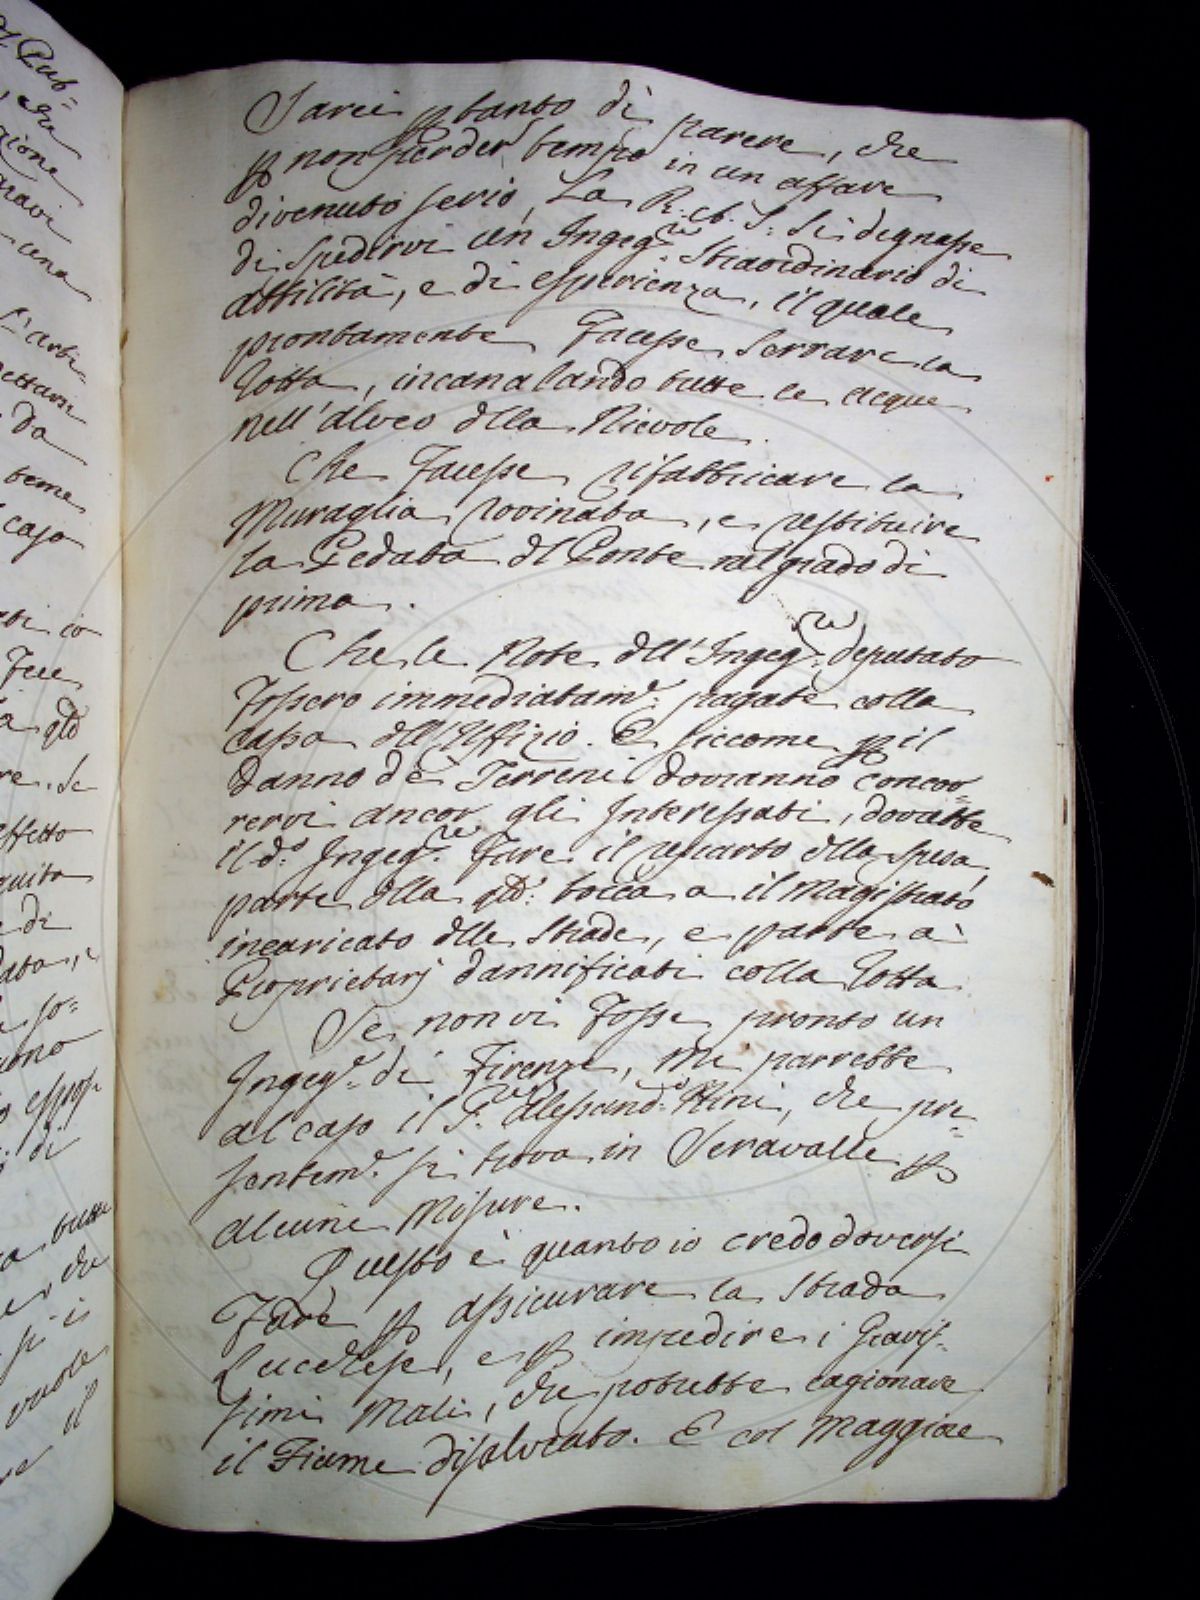 Sarei ꝑ tanto di parere, che
ꝑ non perder tempo in un affare
divenuto serio, La R. Ch. S: si degnasse
di spedirvi un Ingeg.re Straordinario di
abbilità, e di esperienza, il quale
prontamente facesse serrare la
Rotta, incanalando tutte le acque
nell'alveo dlla Nievole.
Che facesse rifabbricare la
Muraglia rovinata, e restituire
la Pedata dl Ponte nal grado di
prima.
Che le Note dll'Ingeg.re deputato
fossero immediatam.e pagate colla
cassa dll'Uffizio. E siccome ꝑ il
danno de Terreni dovranno concor=
rervi ancor gli Interessati, dovrebbe
il d.o Ingeg.re fare il reparto dlla spesa,
parte dlla qle: tocca a il Magistrato
incaricato dlle Strade, e parte a
Proprietarj dannificati colla Rotta
Se non vi fosse pronto un
Ingeg.e di Firenze, mi parrebbe
al caso il S.re Alessand.o Nini, che pre=
sentem.e si trova in Seravalle ꝑ
alcune Misure.
Questo è quanto io credo doversi
fare ꝑ assicurare la Strada
Lucchese, e ꝑ impedire i Gravis=
simi Mali, che potrebbe cagionare
il Fiume disalveato. E col Maggiore